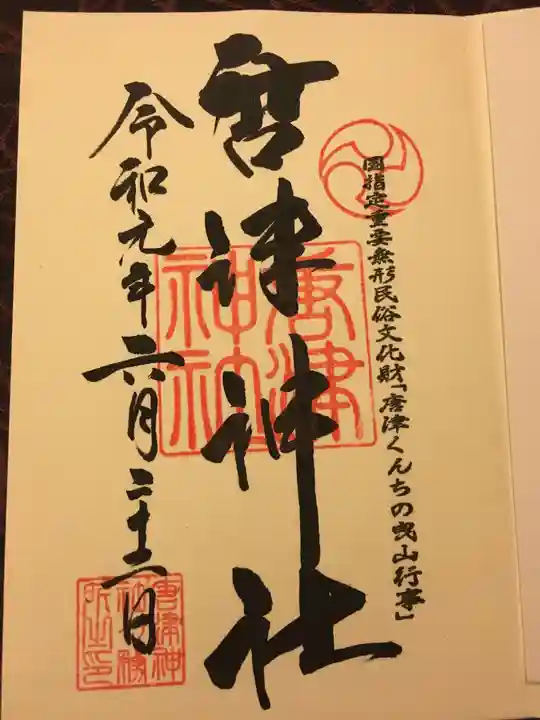 国指定重要無形民俗文化財「唐津くんちの曳山行事」
唐津神社
唐津
神社
令和元年六月二十二日
唐津神
社務
所之印